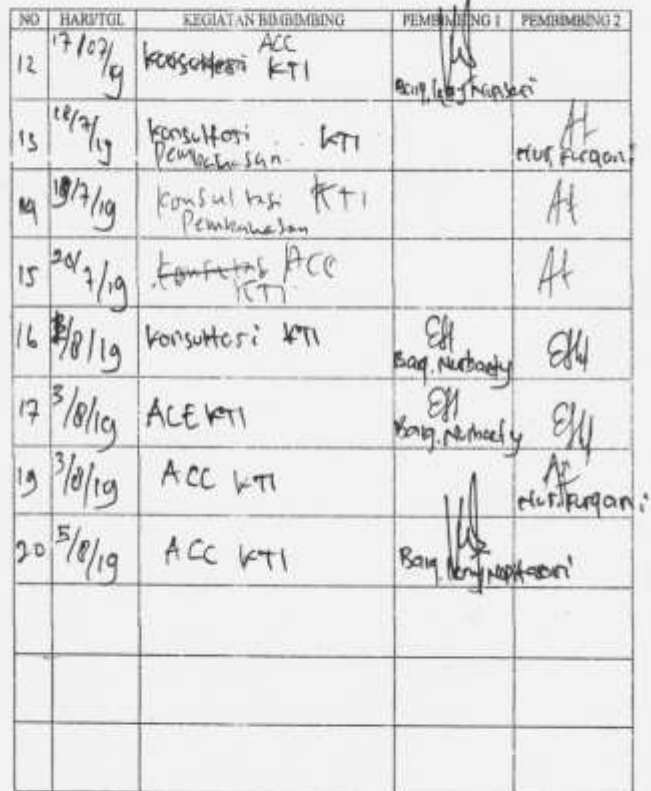 NO HARI/TGL KEGIATAN BIMBIMBING PEMBIMBING 1 PEMBIMBING 2
12 17/07/19 konsultasi ACC KTI
13 18/7/19 konsultasi KTI
Pembahasan Nur. Furqani
14 19/7/19 konsultasi KTI
Pembahasan
15 20/7/19 ACC
KTI
16 /8/19 konsultasi KTI
Baiq. Nurbaety
17 3/8/19 ACC KTI
Baiq. Nurbaety
19 3/8/19 ACC KTI
Nur. Furqani
20 5/8/19 ACC KTI
Baiq